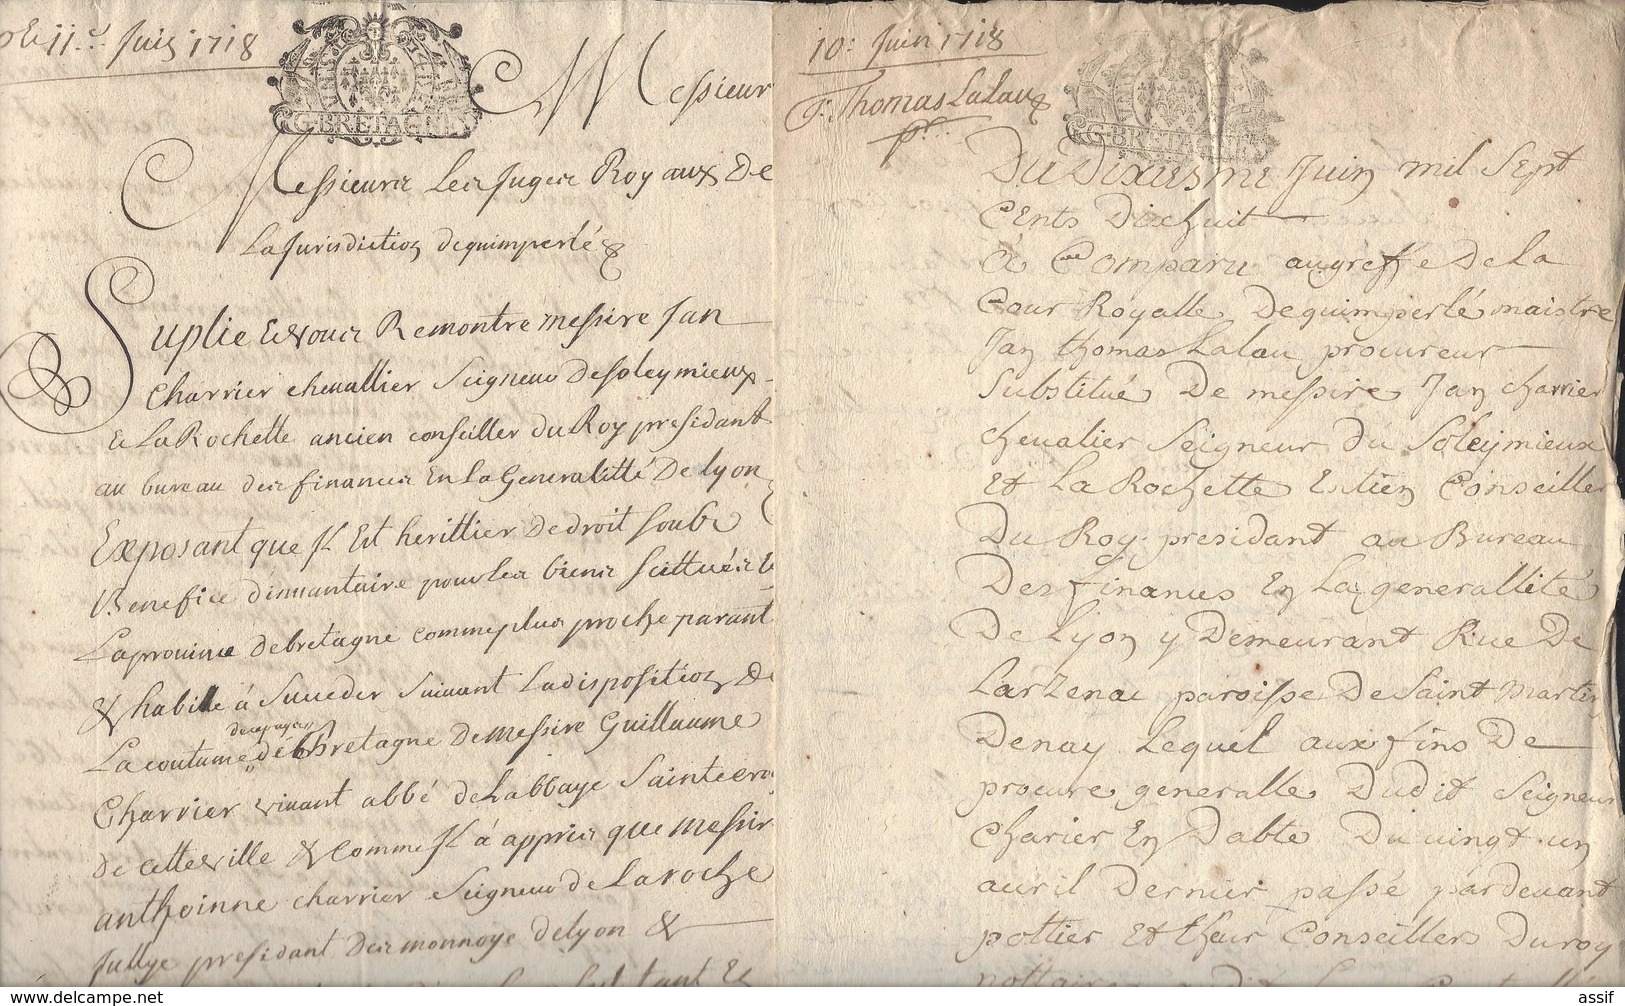 11e Juin 1718
G. BRETAGNE
Messieur
Messieurs Les Juges Royaux De
La Jurisdiction de quimperlé &
Suplie Et vous Remontre messire Jan
Charrier chevallier Seigneur De soleymieux
& La Rochette ancien conseiller du Roy presidant
au bureau des finances En La Generalitté De lyon
Exposant que Jl Est herittier de droit soubs
Benefice dinvantaire pour les biens scittués
La province de bretagne comme plus proche parant
& habille à succeder suivant La disposition De
La coutume de ce pays de bretagne De messire Guillaume
Charrier vivant abbé de Labbaye Sainte croi
de cette ville & comme Jl à appris que messir
anthoinne charrier Seigneur de La roche
Jullye presidant des monnoye de lyon &
10e Juin 1718
J. Thomas Lalau
pr.
G. BRETAGNE
Du Dixiesme Juin mil Sept
Cents Dixhuit
à Comparu au greffe De La
Cour Royalle De quimperlé maistre
Jan thomas Lalau procureur
Substitué De messire Jan charrier
chevalier Seigneur du Soleymieux
Et La Rochette Entien Conseiller
Du Roy presidant au Bureau
Des finances En La generallité
De Lyon y Demeurant Rue De
Larzenac paroisse De Saint Martin
Denay Lequel aux fins De
procure generalle Dudit Seigneur
Charier En Dabte Du vingt un
avril Dernier passé pardevant
pottier Et theur Conseillers Du roy
nottaires